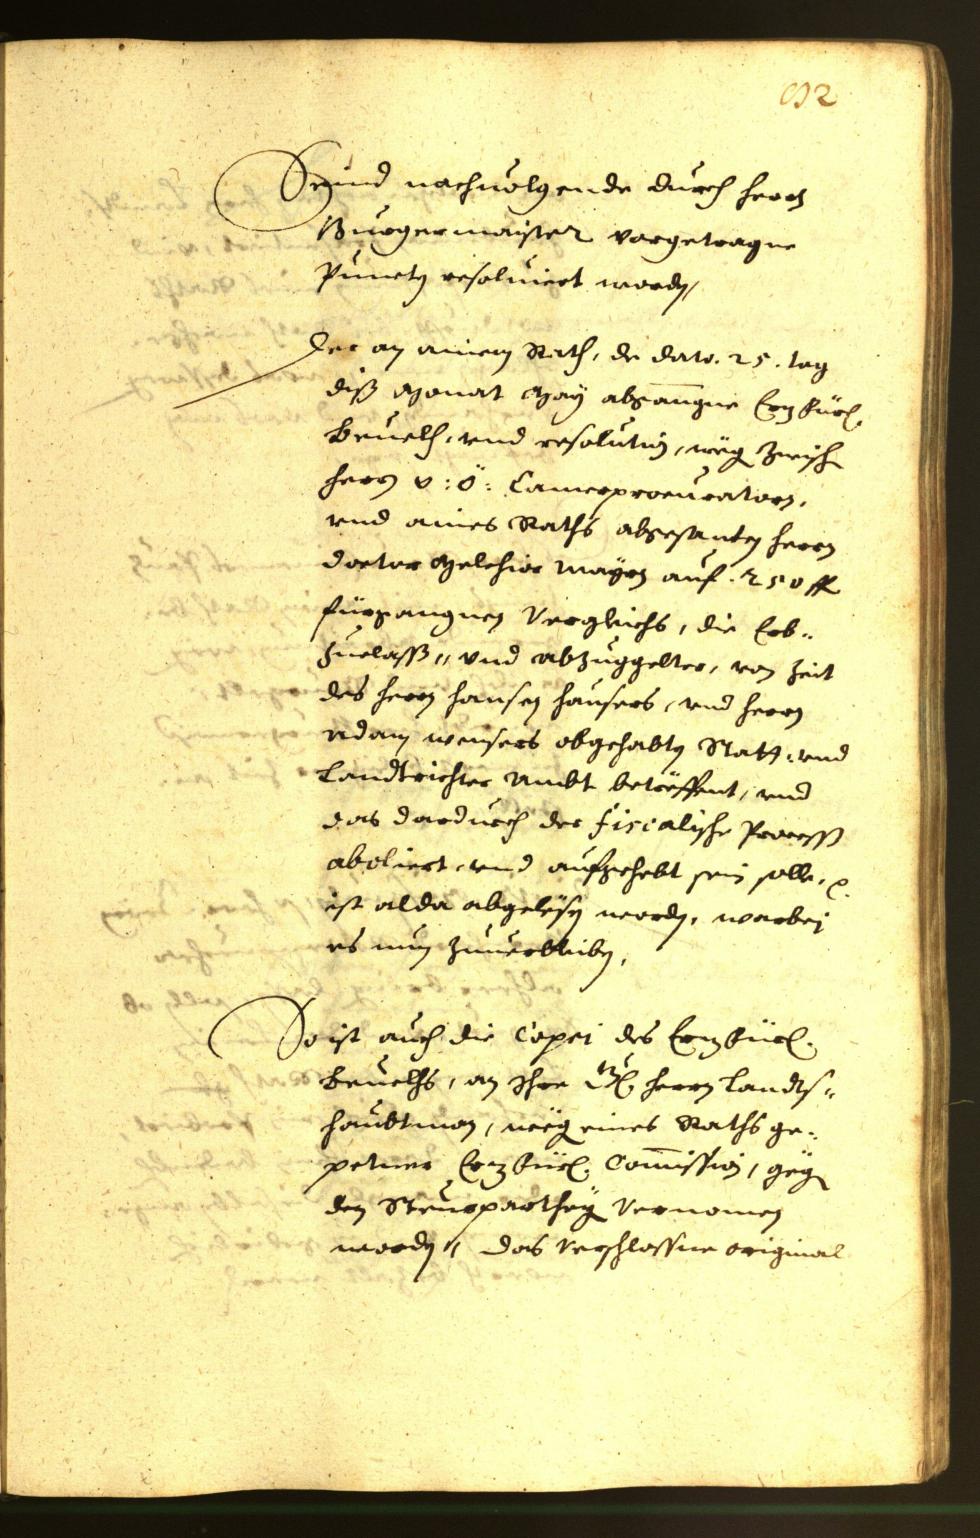 92
Seind nachuolgende durch herrn
Burgermaister vorgetragne
Puncten resoluiert worden,
Der an ainen Rath, de dato. 25. tag
diß Monat Maÿ abgangne Erzfürl.
Beuelh, vnd resolution, weg zwisch
herrn v: ö: Camerprocuratorn,
vnd aines Raths abgesanten herrn
doctor Melchior Mayrn auf. 250 fl
fürgangnen Verglichs, die Erb-
zuelaß, vnd abzuggelter, von Zeit
des herrn Hansen Hausers, vnd herrn
Adam Weisers obgehabten Statt: vnd
Landtrichter Ambt betreffent, vnd
das dardurch der fiscalische Process
aboliert, vnd aufgehebt sein solle,
ist alda abgelesen worden, warbej
es nun zuuerbleiben,
So ist auch die Copei des Erzfürl.
Beuelhs, an Ihre herrn Landts-
haubtman, weg eines Raths ge-
petner Erzfürl. Commission, geg
den Steurparthey Vernomen
worden, das Verschlossne original